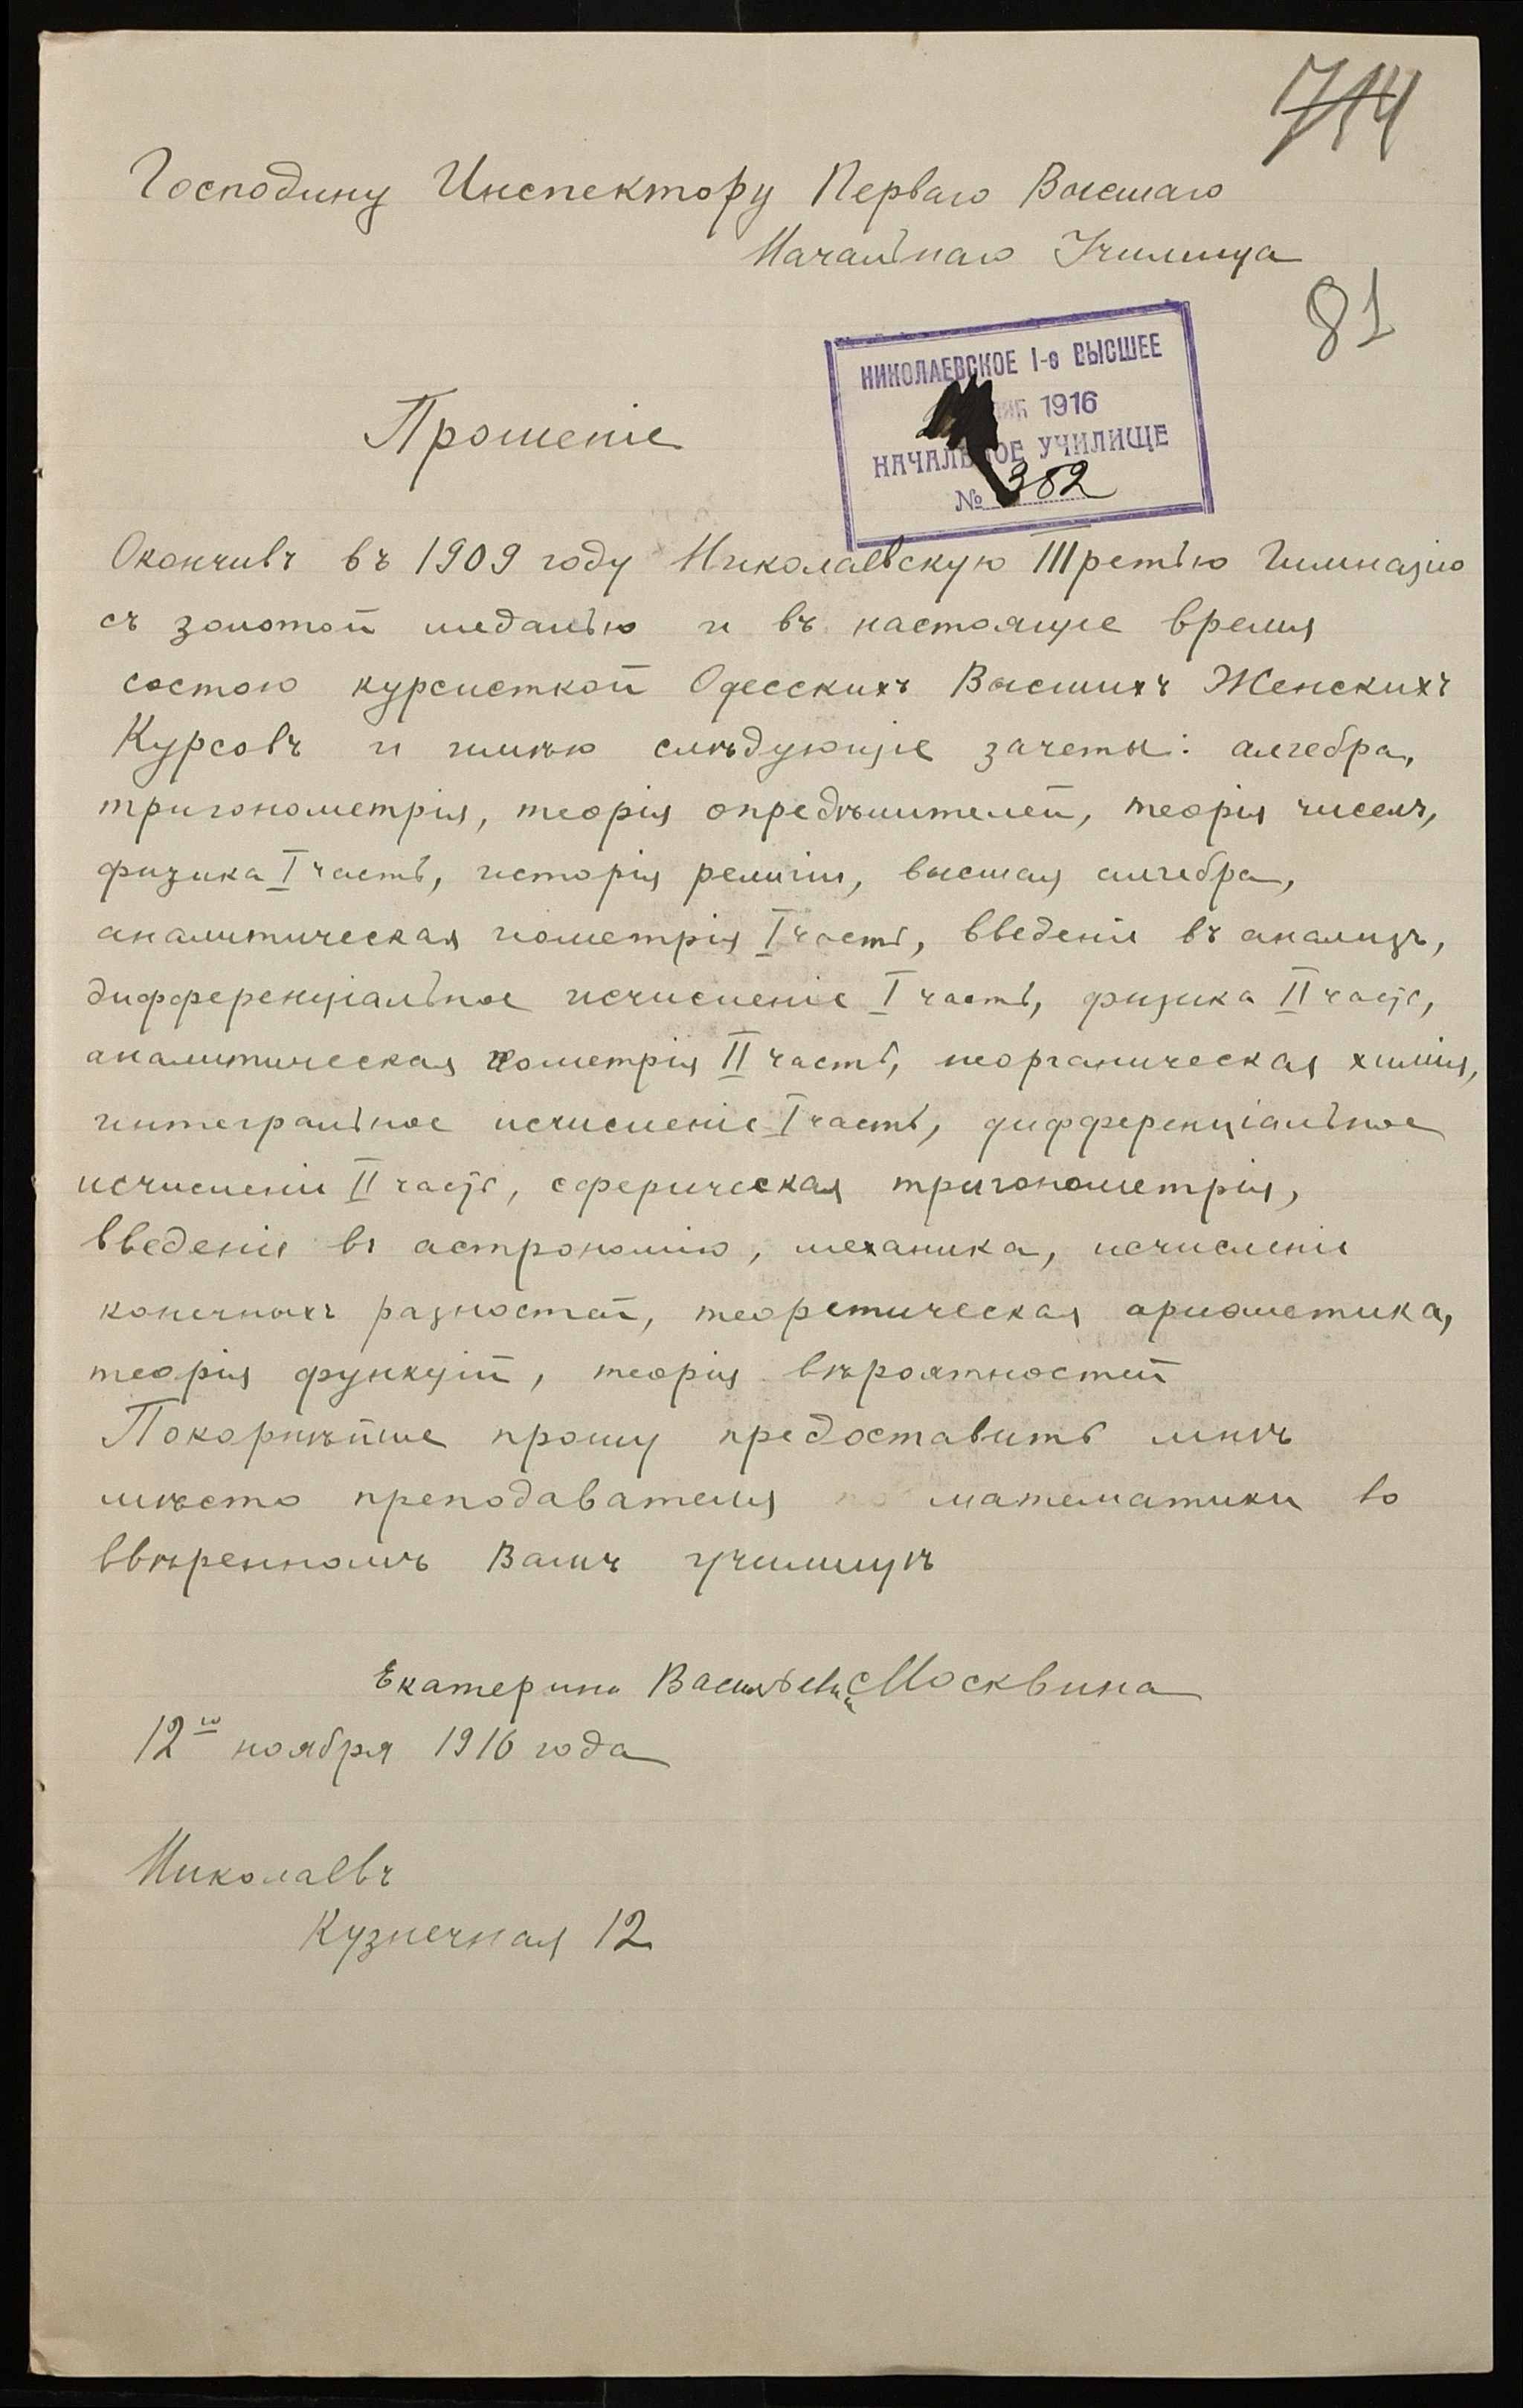 714
Господину Инспектору Перваго Высшаго
Начальнаго Училища
81
НИКОЛАЕВСКОЕ 1-е ВЫСШЕЕ
1916
НАЧАЛЬНОЕ УЧИЛИЩЕ
№ 382
Прошеніе
Окончивъ въ 1909 году Николаевскую Третью Гимназію
съ золотой медалью и въ настоящее время
состою курсисткой Одесскихъ Высшихъ Женскихъ
Курсовъ и имѣю слѣдующіе зачеты: алгебра,
тригонометрія, теорія опредѣлителей, теорія чиселъ,
физика I часть, исторія религіи, высшая алгебра,
аналитическая геометрія I часть, введеніе въ анализъ,
дифференціальное исчисленіе I часть, физика II часть,
аналитическая геометрія II часть, неорганическая химія,
интегральное исчисленіе I часть, дифференціальное
исчисленіе II часть, сферическая тригонометрія,
введеніе въ астрономію, механика, исчисленіе
конечныхъ разностей, теоретическая ариѳметика,
теорія функцій, теорія вѣроятностей
Покорнѣйше прошу предоставить мнѣ
мѣсто преподавателя математики во
ввѣренномъ Вамъ училищѣ
Екатерина Васильевна Москвина
12го ноября 1916 года
Николаевъ
Кузнечная 12